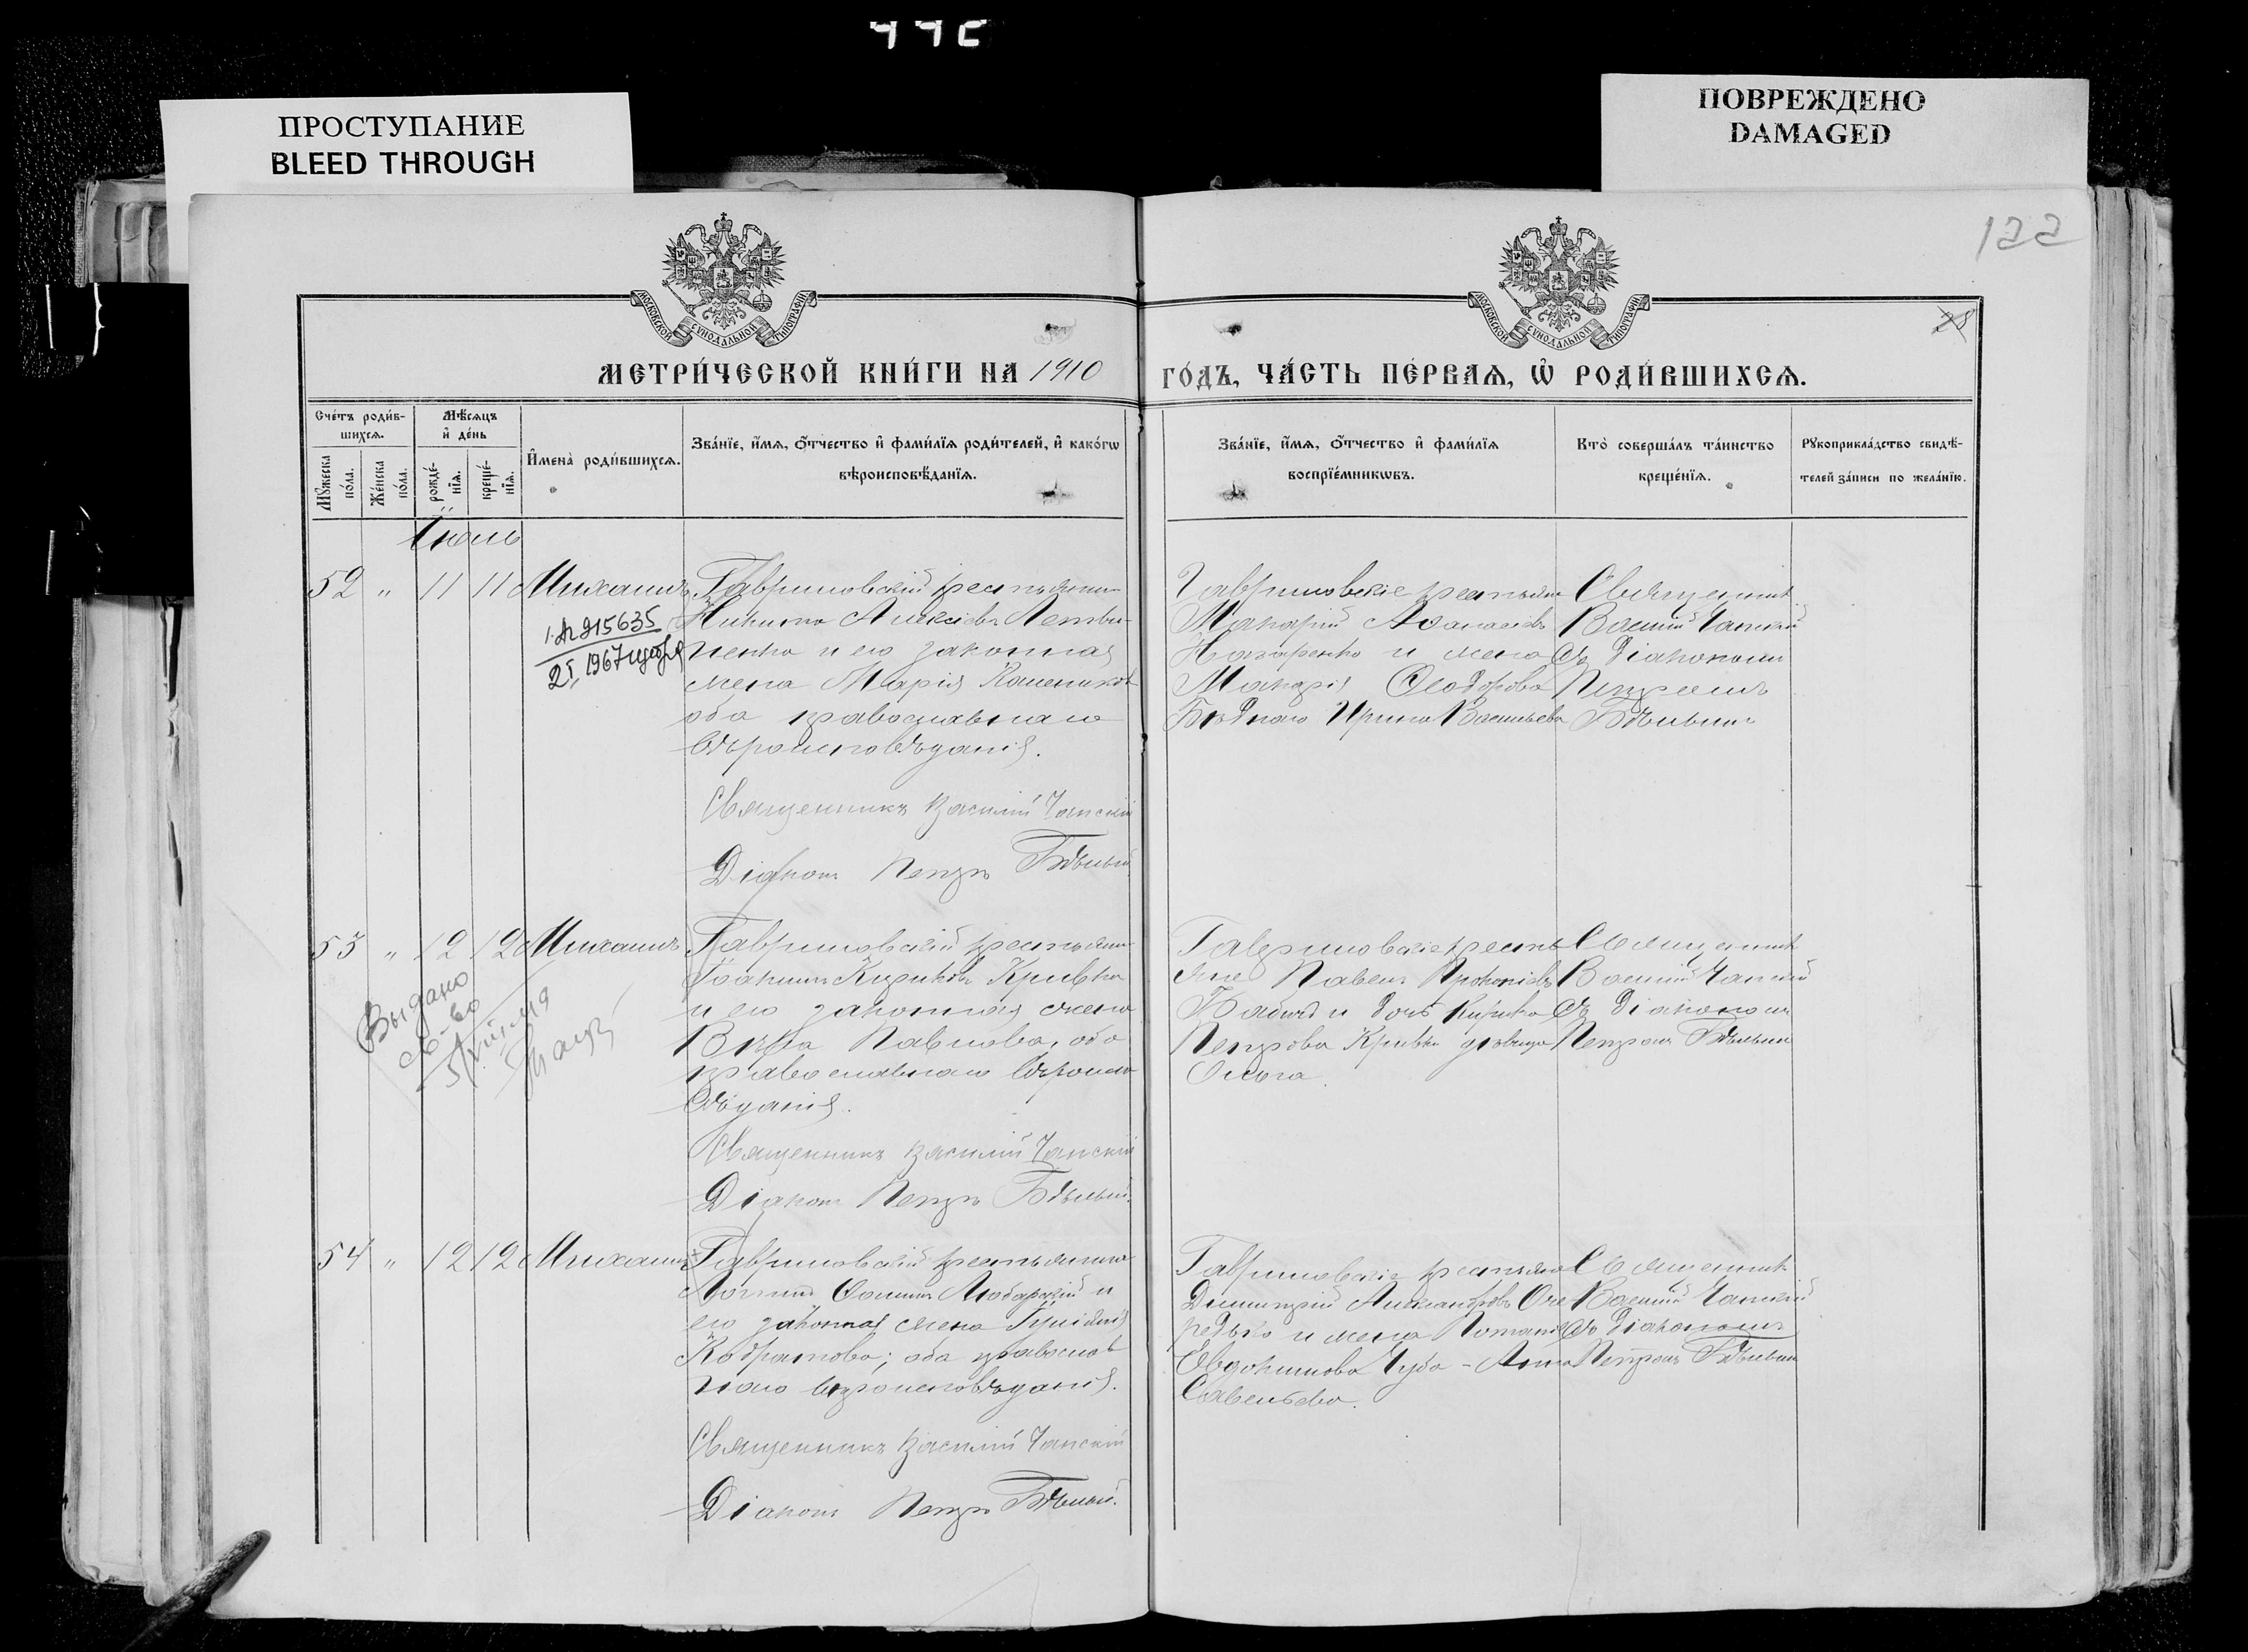 ПРОСТУПАНИЕ
BLEED THROUGH
ПОВРЕЖДЕНО
DAMAGED
122
МОСКОВСКОЙ СѴНОДАЛЬНОЙ ТИПОГРАФІИ
МОСКОВСКОЙ СѴНОДАЛЬНОЙ ТИПОГРАФІИ
28
МЕТРИ́ЧЕСКОЙ КНИ́ГИ НА 1910
ГО́ДЪ, ЧА́СТЬ ПЕ́РВАѦ, Ѡ҆ РОДИ́ВШИХСѦ.
Сче́тъ роди́в-
шихсѧ.
Мꙋжеска
по́ла.
Же́нска
по́ла.
Мѣ́сѧцъ
и҆ де́нь
рожде́-
нїѧ.
креще́-
нїѧ.
И҆мена̀ роди́вшихсѧ.
Зва́нїе, и҆́мѧ, ѻ҆́тчество и҆ фами́лїѧ роди́телей, и҆ како́гѡ
вѣроисповѣ́данїѧ.
Зва́нїе, и҆́мѧ, ѻ҆́тчество и҆ фами́лїѧ
воспрїе́мникѡвъ.
Кто̀ соверша́лъ та́инство
креще́нїѧ.
Рꙋкоприкла́дство свидѣ́-
телей за́писи по жела́нїю.
Іюль
52 " 11 11 Михаилъ
Гавриловскій крестьянин
Никита Алексіевъ Летви-
ненко и его законная
жена Марія
оба православнаго
вѣроисповѣданія.
Священникъ Василій Чапскій
Діаконъ Петръ Бѣлый
1967
Гавриловскіе крестьян
Макарій Аѳанасіевъ
Назаренко и жена
Макарія Ѳеодорова
Бѣднаго Ирина Васильева
Священник
Василій Чапскій
съ діакономъ
Петромъ
Бѣлымъ
53 " 12 12 Михаилъ
Выдано
св-во
Гавриловскій крестьянин
Іоакимъ Кириковъ Кривка
и его законная жена
Вѣра Павлова, оба
православнаго вѣроиспо
вѣданія.
Священникъ Василій Чапскій
Діаконъ Петръ Бѣлый.
Гавриловскіе кресть
яне Павелъ Прокопіевъ
и дочь Кирика
Петрова Кривки дѣвица
Ольга.
Священник
Василій Чапскій
съ діакономъ
Петромъ Бѣлымъ
54 " 12 12 Михаилъ
Гавриловскій крестьянинъ
Логгинъ Ѳоминъ Любарскій и
его законная жена Гликерія
Кодратова; оба православ
наго вѣроисповѣданія.
Священникъ Василій Чапскій
Діаконъ Петръ Бѣлый.
Гавриловскіе крестьяне
Димитрій Александровъ Оче
редько и жена Потапія
Евдокимова Чуба - Анна
Савельева.
Священник
Василій Чапскій
съ діакономъ
Петромъ Бѣлымъ